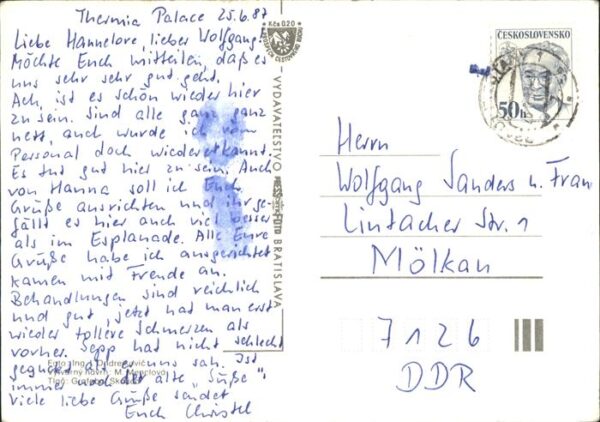 Thermia Palace 25.6.87
Liebe Hannelore lieber Wolfgang!
Möchte Euch mitteilen, daß es
uns sehr sehr gut geht.
Ach, ist es schön wieder hier
zu sein. Sind alle ganz ganz
nett, auch wurde ich vom
Personal doch wiedererkannt.
Es tut gut hier zu sein. Auch
von Hanna soll ich Euch
Grüße ausrichten und ihr ge-
fällt es hier auch viel besser
als im Esplanade. Alle Eure
Grüße habe ich ausgerichtet
kamen mit Freude an.
Behandlungen sind reichlich
und gut, jetzt hat man erst
wieder tollere Schmerzen als
vorher. Sepp hat nicht schlecht
geguckt als er uns sah. Ist
immer noch der alte „Süße",
viele liebe Grüße sendet
Euch Christel
Kčs 0.20
VYDAVATEĽSTVO
PRESSFOTO
BRATISLAVA
ČESKOSLOVENSKO
50 h
Herrn
Wolfgang Sanders u. Frau
Lintacher Str. 1
Mölkau
7126
DDR